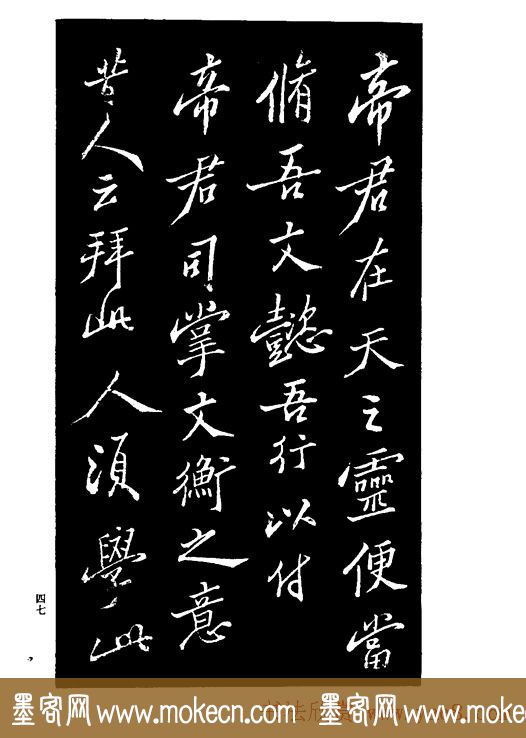 帝君在天之靈便當
脩吾文懿吾行以付
帝君司掌文衡之意
昔人云拜此人須學此
四七
墨客网 www.mokecn.com 墨客网 www.mokecn.com